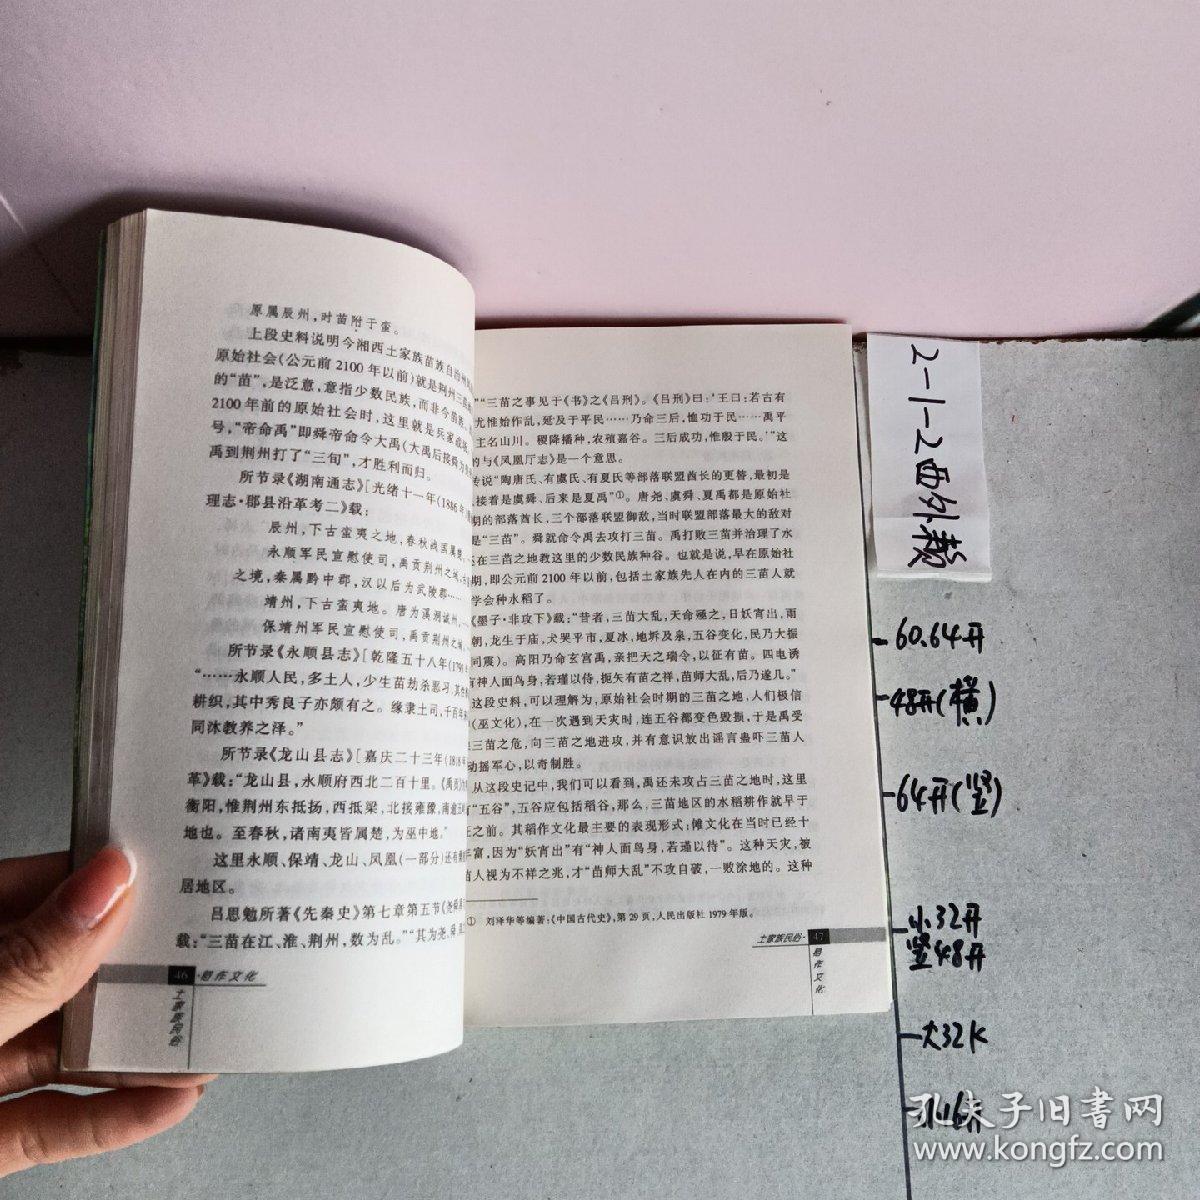 原属辰州，时苗附于蛮。
上段史料说明今湘西土家族苗族自治州
原始社会(公元前2100年以前)就是荆州三苗
的“苗”，是泛意，意指少数民族，而非今苗族。
2100年前的原始社会时，这里就是兵家
号，“帝命禹”即舜帝命令大禹(大禹后接舜
禹到荆州打了“三旬”，才胜利而归。
所节录《湖南通志》[光绪十一年(1886年)
理志·郡县沿革考二》载：
辰州，下古蛮夷之地，春秋战国属楚，
永顺军民宣慰使司，禹贡荆州之域，
之境，秦属黔中郡，汉以后为武陵郡……
靖州，下古蛮夷地。唐为溪洞诚州，
保靖州军民宣慰使司，禹贡荆州之域，
所节录《永顺县志》[乾隆五十八年(179
“……永顺人民，多土人，少生苗劫杀恶习，其
耕织，其中秀良子亦颇有之。缘隶土司，千百年
同沐教养之泽。”
所节录《龙山县志》[嘉庆二十三年(1818年
革》载：“龙山县，永顺府西北二百十里。《禹贡》
衡阳，惟荆州东抵扬，西抵梁，北接雍豫，南
地也。至春秋，诸南夷皆属楚，为巫中地。”
这里永顺、保靖、龙山、凤凰(一部分)还有
居地区。
吕思勉所著《先秦史》第七章第五节《尧舜
载：“三苗在江、淮、荆州，数为乱。”“其为尧、舜
46 稻作文化
土家族民俗
”“三苗之事见于《书》之《吕刑》。《吕刑》曰：‘王曰：若古有
尤惟始作乱，延及于平民……乃命三后，恤功于民……禹平
主名山川。稷降播种，农殖嘉谷。三后成功，惟殷于民。’”这
的与《凤凰厅志》是一个意思。
传说“陶唐氏、有虞氏、有夏氏等部落联盟酋长的更替，最初是
接着是虞舜、后来是夏禹”①。唐尧、虞舜、夏禹都是原始社
期的部落酋长，三个部落联盟御敌，当时联盟部落最大的敌对
是“三苗”。舜就命令禹去攻打三苗。禹打败三苗并治理了水
在三苗之地教这里的少数民族种谷。也就是说，早在原始社
期，即公元前2100年以前，包括土家族先人在内的三苗人就
学会种水稻了。
《墨子·非攻下》载：“昔者，三苗大乱，天命殛之，日妖宵出，雨
朝，龙生于庙，犬哭乎市，夏冰，地坼及泉，五谷变化，民乃大振
同震)。高阳乃命玄宫禹，亲把天之瑞令，以征有苗。四电诱
有神人面鸟身，若瑾以侍，扼矢有苗之祥，苗师大乱，后乃遂几。”
这段史料，可以理解为，原始社会时期的三苗之地，人们极信
(巫文化)，在一次遇到天灾时，连五谷都变色毁损，于是禹受
三苗之危，向三苗之地进攻，并有意识放出谣言蛊吓三苗人
动摇军心，以奇制胜。
从这段史记中，我们可以看到，禹还未攻占三苗之地时，这里
“五谷”，五谷应包括稻谷，那么，三苗地区的水稻耕作就早于
之前。其稻作文化最主要的表现形式：傩文化在当时已经十
丰富，因为“妖宵出”有“神人面鸟身，若瑾以侍”。这种天灾，被
苗人视为不祥之兆，才“苗师大乱”不攻自破，一败涂地的。这种
① 刘泽华等编著：《中国古代史》，第29页，人民出版社1979年版。
土家族民俗· 47
稻作文化
2-1-2西外教
60.64开
48开(横)
64开(竖)
小32开
竖48开
大32K
小16开
孔夫子旧书网
www.kongfz.com